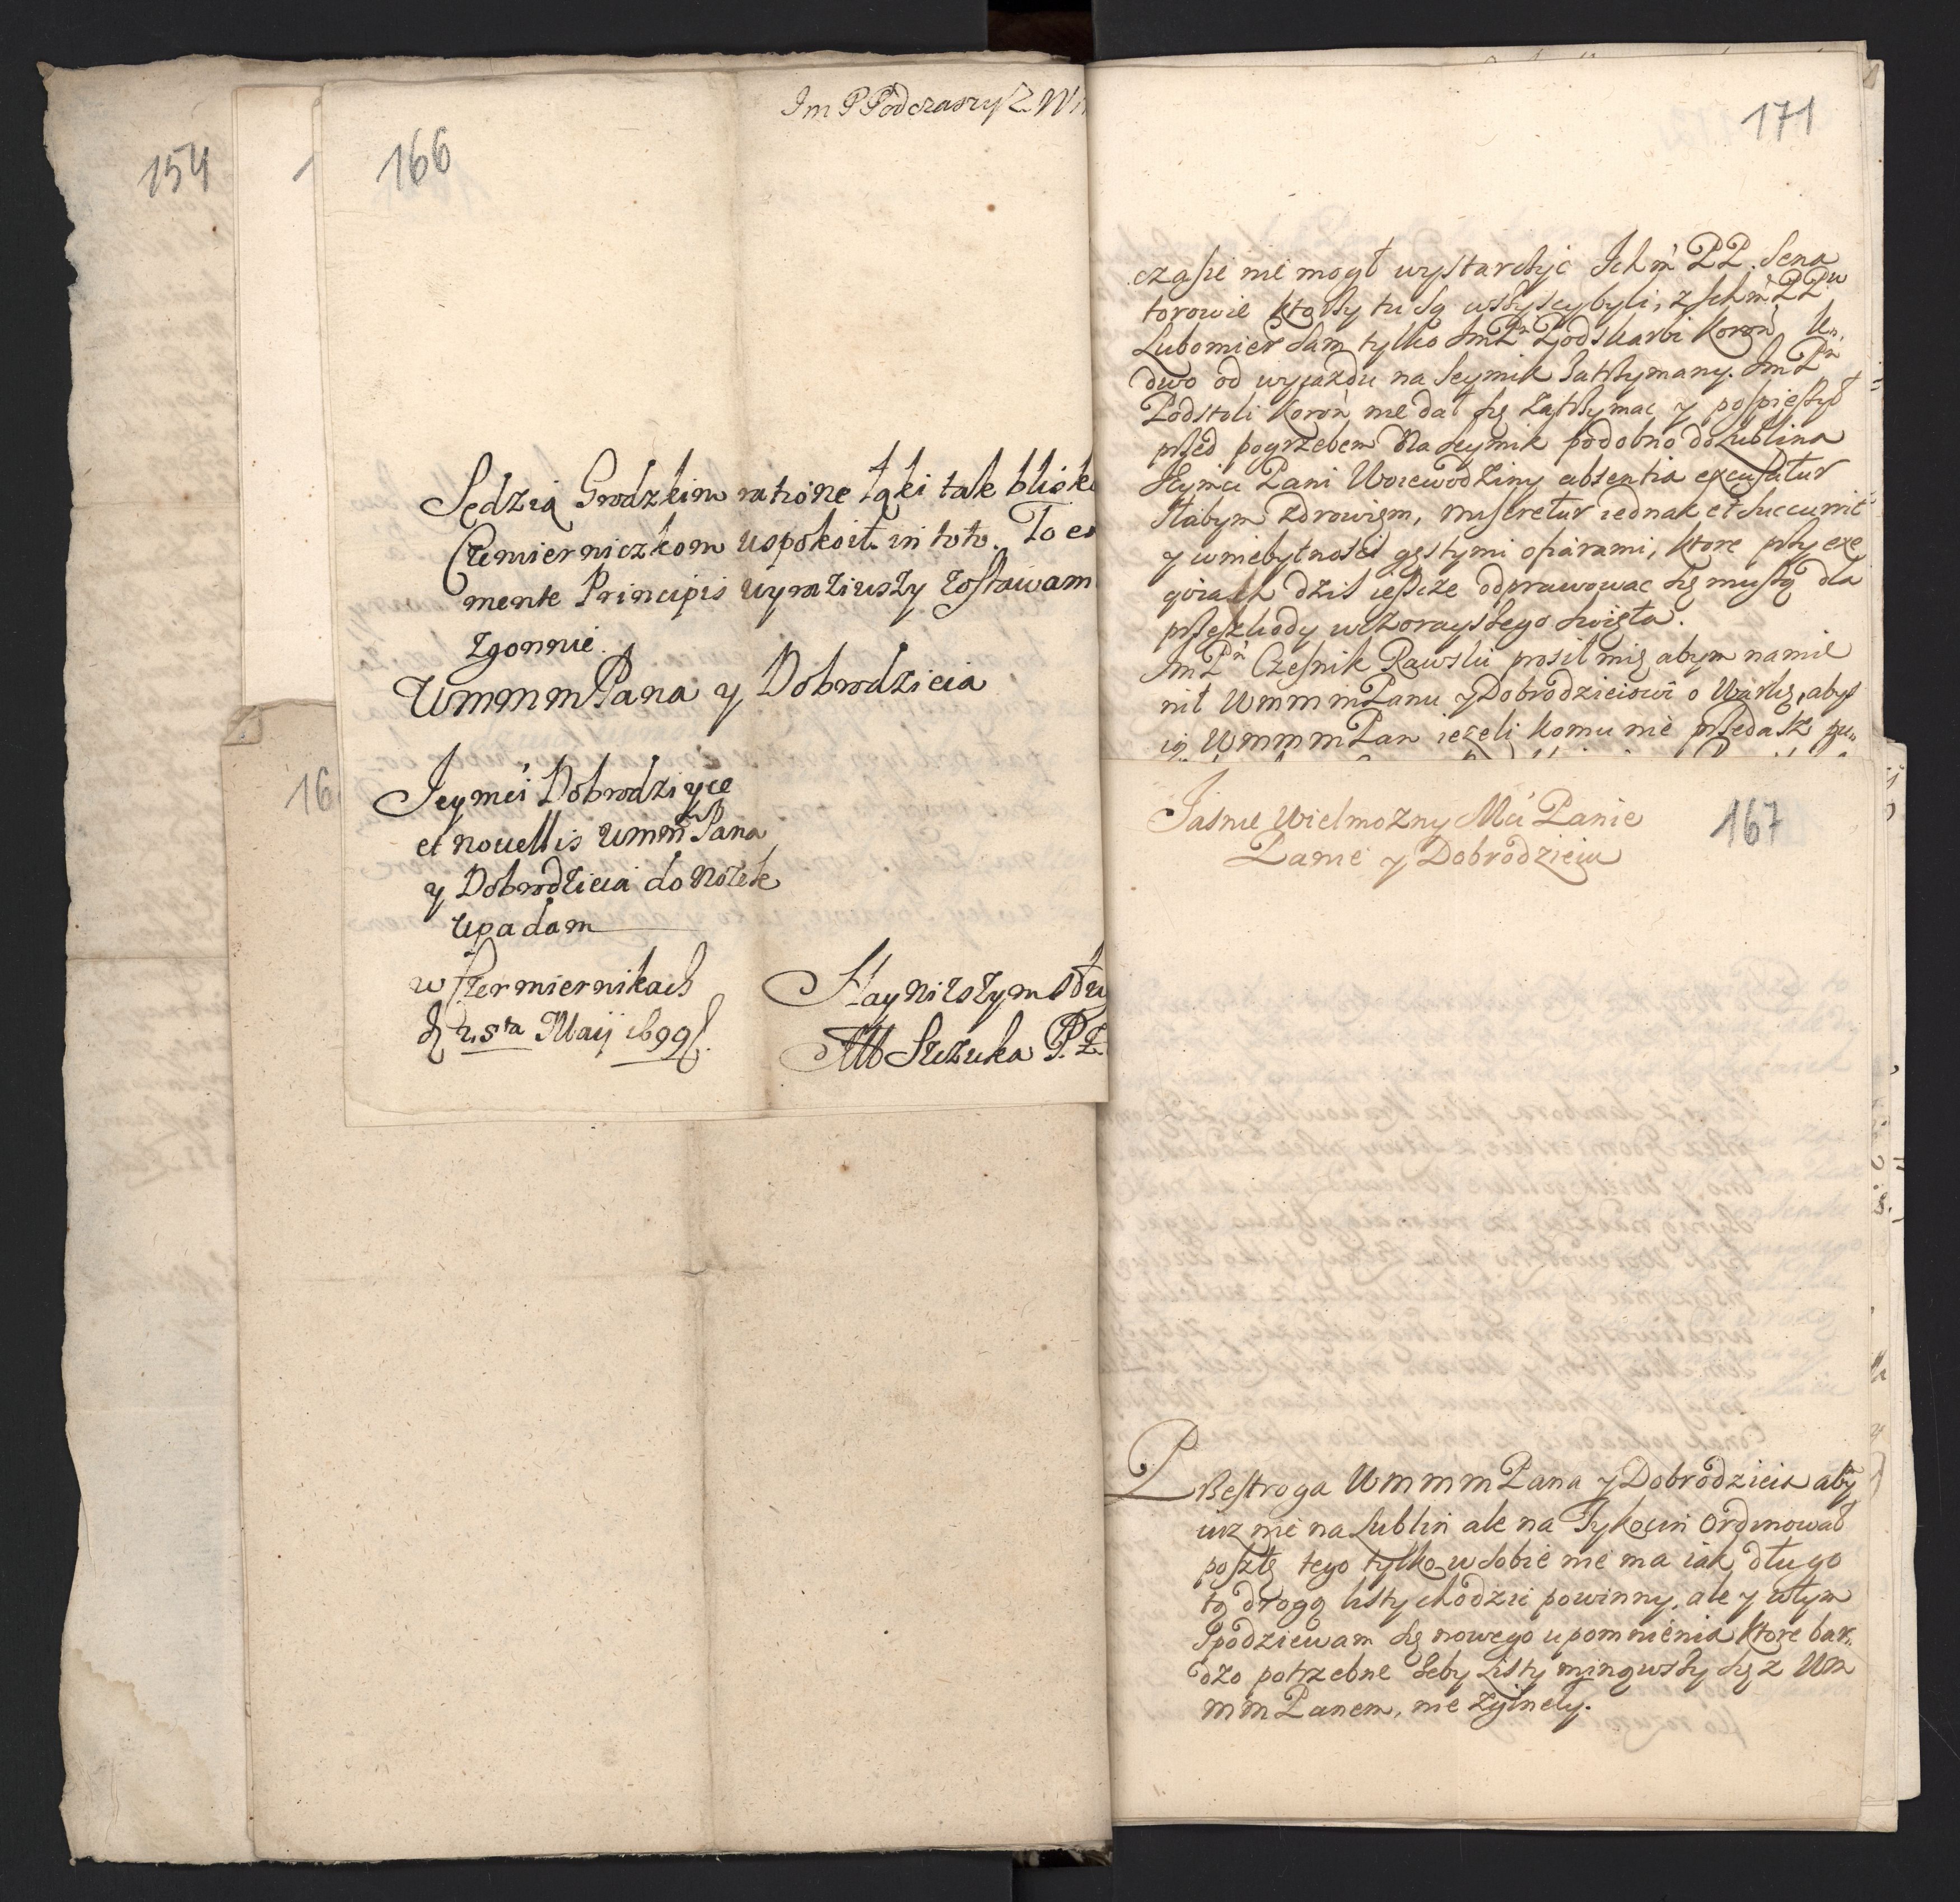 154
166
Im P Podczaszy Z W
Sędzią Grodzkim ratione łąki tak blisk
Czemierniczkom uspokoił in toto. To e
mente Principis wyraziwszy zostawam
zgonnie.
WmmmPana y Dobrodzieia
Jeymći Dobrodzijce
et novellis WmmPana
y Dobrodzieia do nożek
upadam
w Czermiernikach
d 25ta Maij 1699
Nayniższym słu
Szczuka P. Z.
16
171
czasie nie mogł wystarczyć Ich m̃ PP. Sena
torowie ktorzy tu są wszyscy byli, z Ich m̃ PPw
Lubomier sam tylko ImPn Podskarbi Koron̄ le„
dwo od wyjazdu na Seymik zatrzymany. Im Pn
Podstoli Koron̄ nie dał się zatrzymac y pospieszył
przed pogrzebem na seymik podobno do Lublina
Jeymci Pani Woiewodziny absentia excusatur
słabym zdrowiem, miseretur iednak et succurrit
y w niebytności gęstymi ofiarami, ktore przy exe
qwiach dzis ieszcze odprawowac się muszą dla
przeszkody wczorayszego święta.
Im Pn Czesnik Rawski prosił mię abym namie
nił WmmmPanu y Dobrodzieiowi o aby
ią WmmmPan ieżeli komu nie przedasz pu„
167
Jasnie Wielmozny Mci Panie
Panie y Dobrodzieiu
Przestroga WmmmPana y Dobrodzieia aby
iuz nie na Lublin ale na Tykocin ordinował
posztę tego tylko w sobie nie ma iak długo
tą drogą listy chodzic powinny, ale y w tym
spodziewam się nowego upomnienia ktore bar„
dzo potrzebne żeby listy minąwszy się z Wm
mmPanem, nie zginęły.